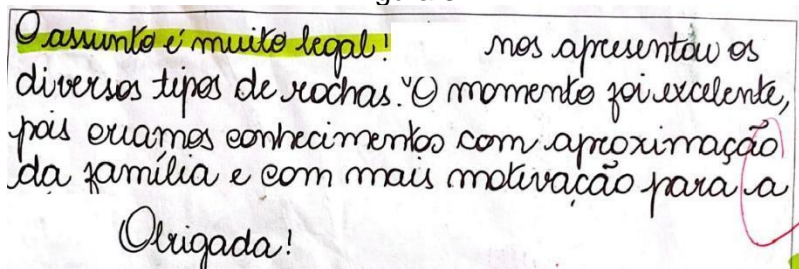 O assunto é muito legal! nos apresentou os
diversos tipos de rochas. "O momento foi excelente,
pois criamos conhecimentos com aproximação
da família e com mais motivação para a
Obrigada!